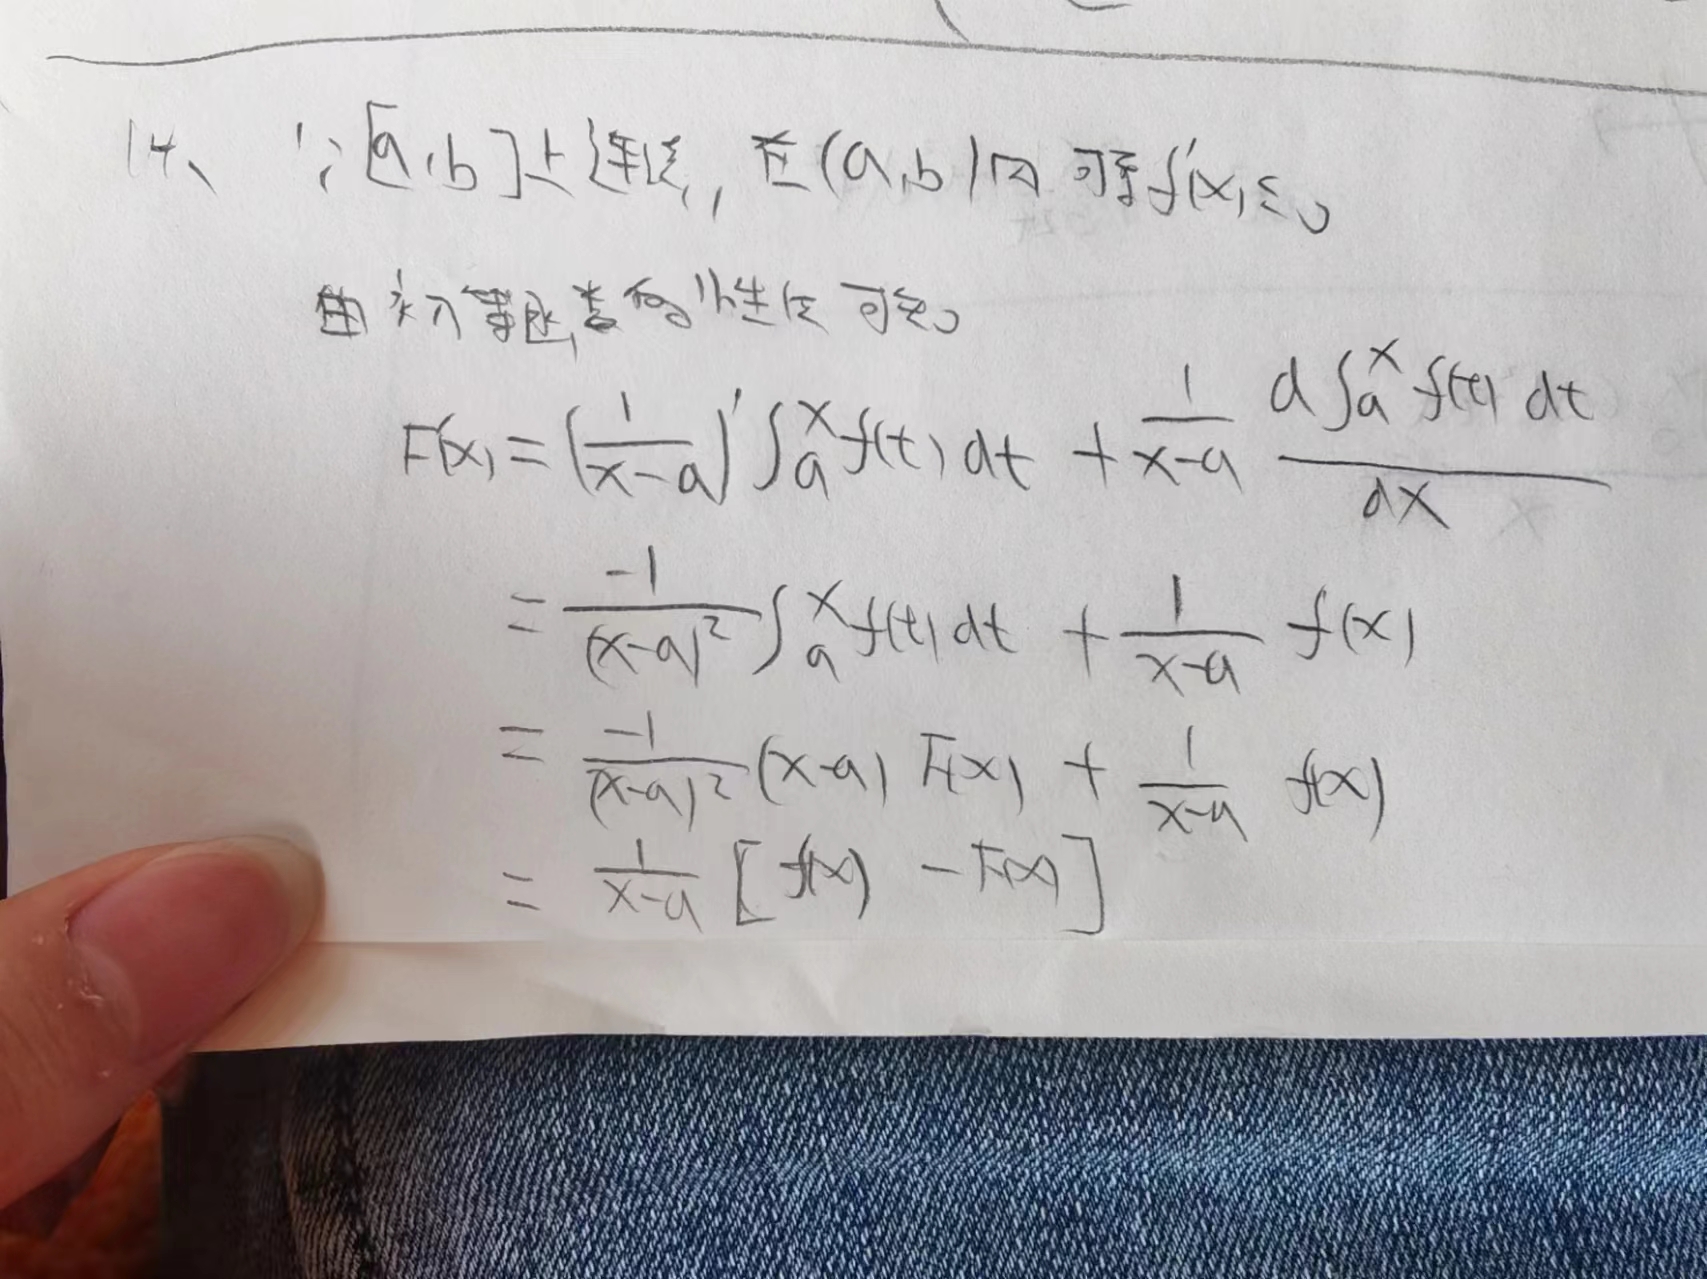 14、 ∵ [a,b]上连续, 在(a,b)内可导f'(x)≤0
由初等函数的性质可知
F'(x) = (1/(x-a))' ∫_a^x f(t) dt + 1/(x-a) d∫_a^x f(t) dt / dx
= -1/(x-a)² ∫_a^x f(t) dt + 1/(x-a) f(x)
= -1/(x-a)² (x-a) F(x) + 1/(x-a) f(x)
= 1/(x-a) [f(x) - F(x)]